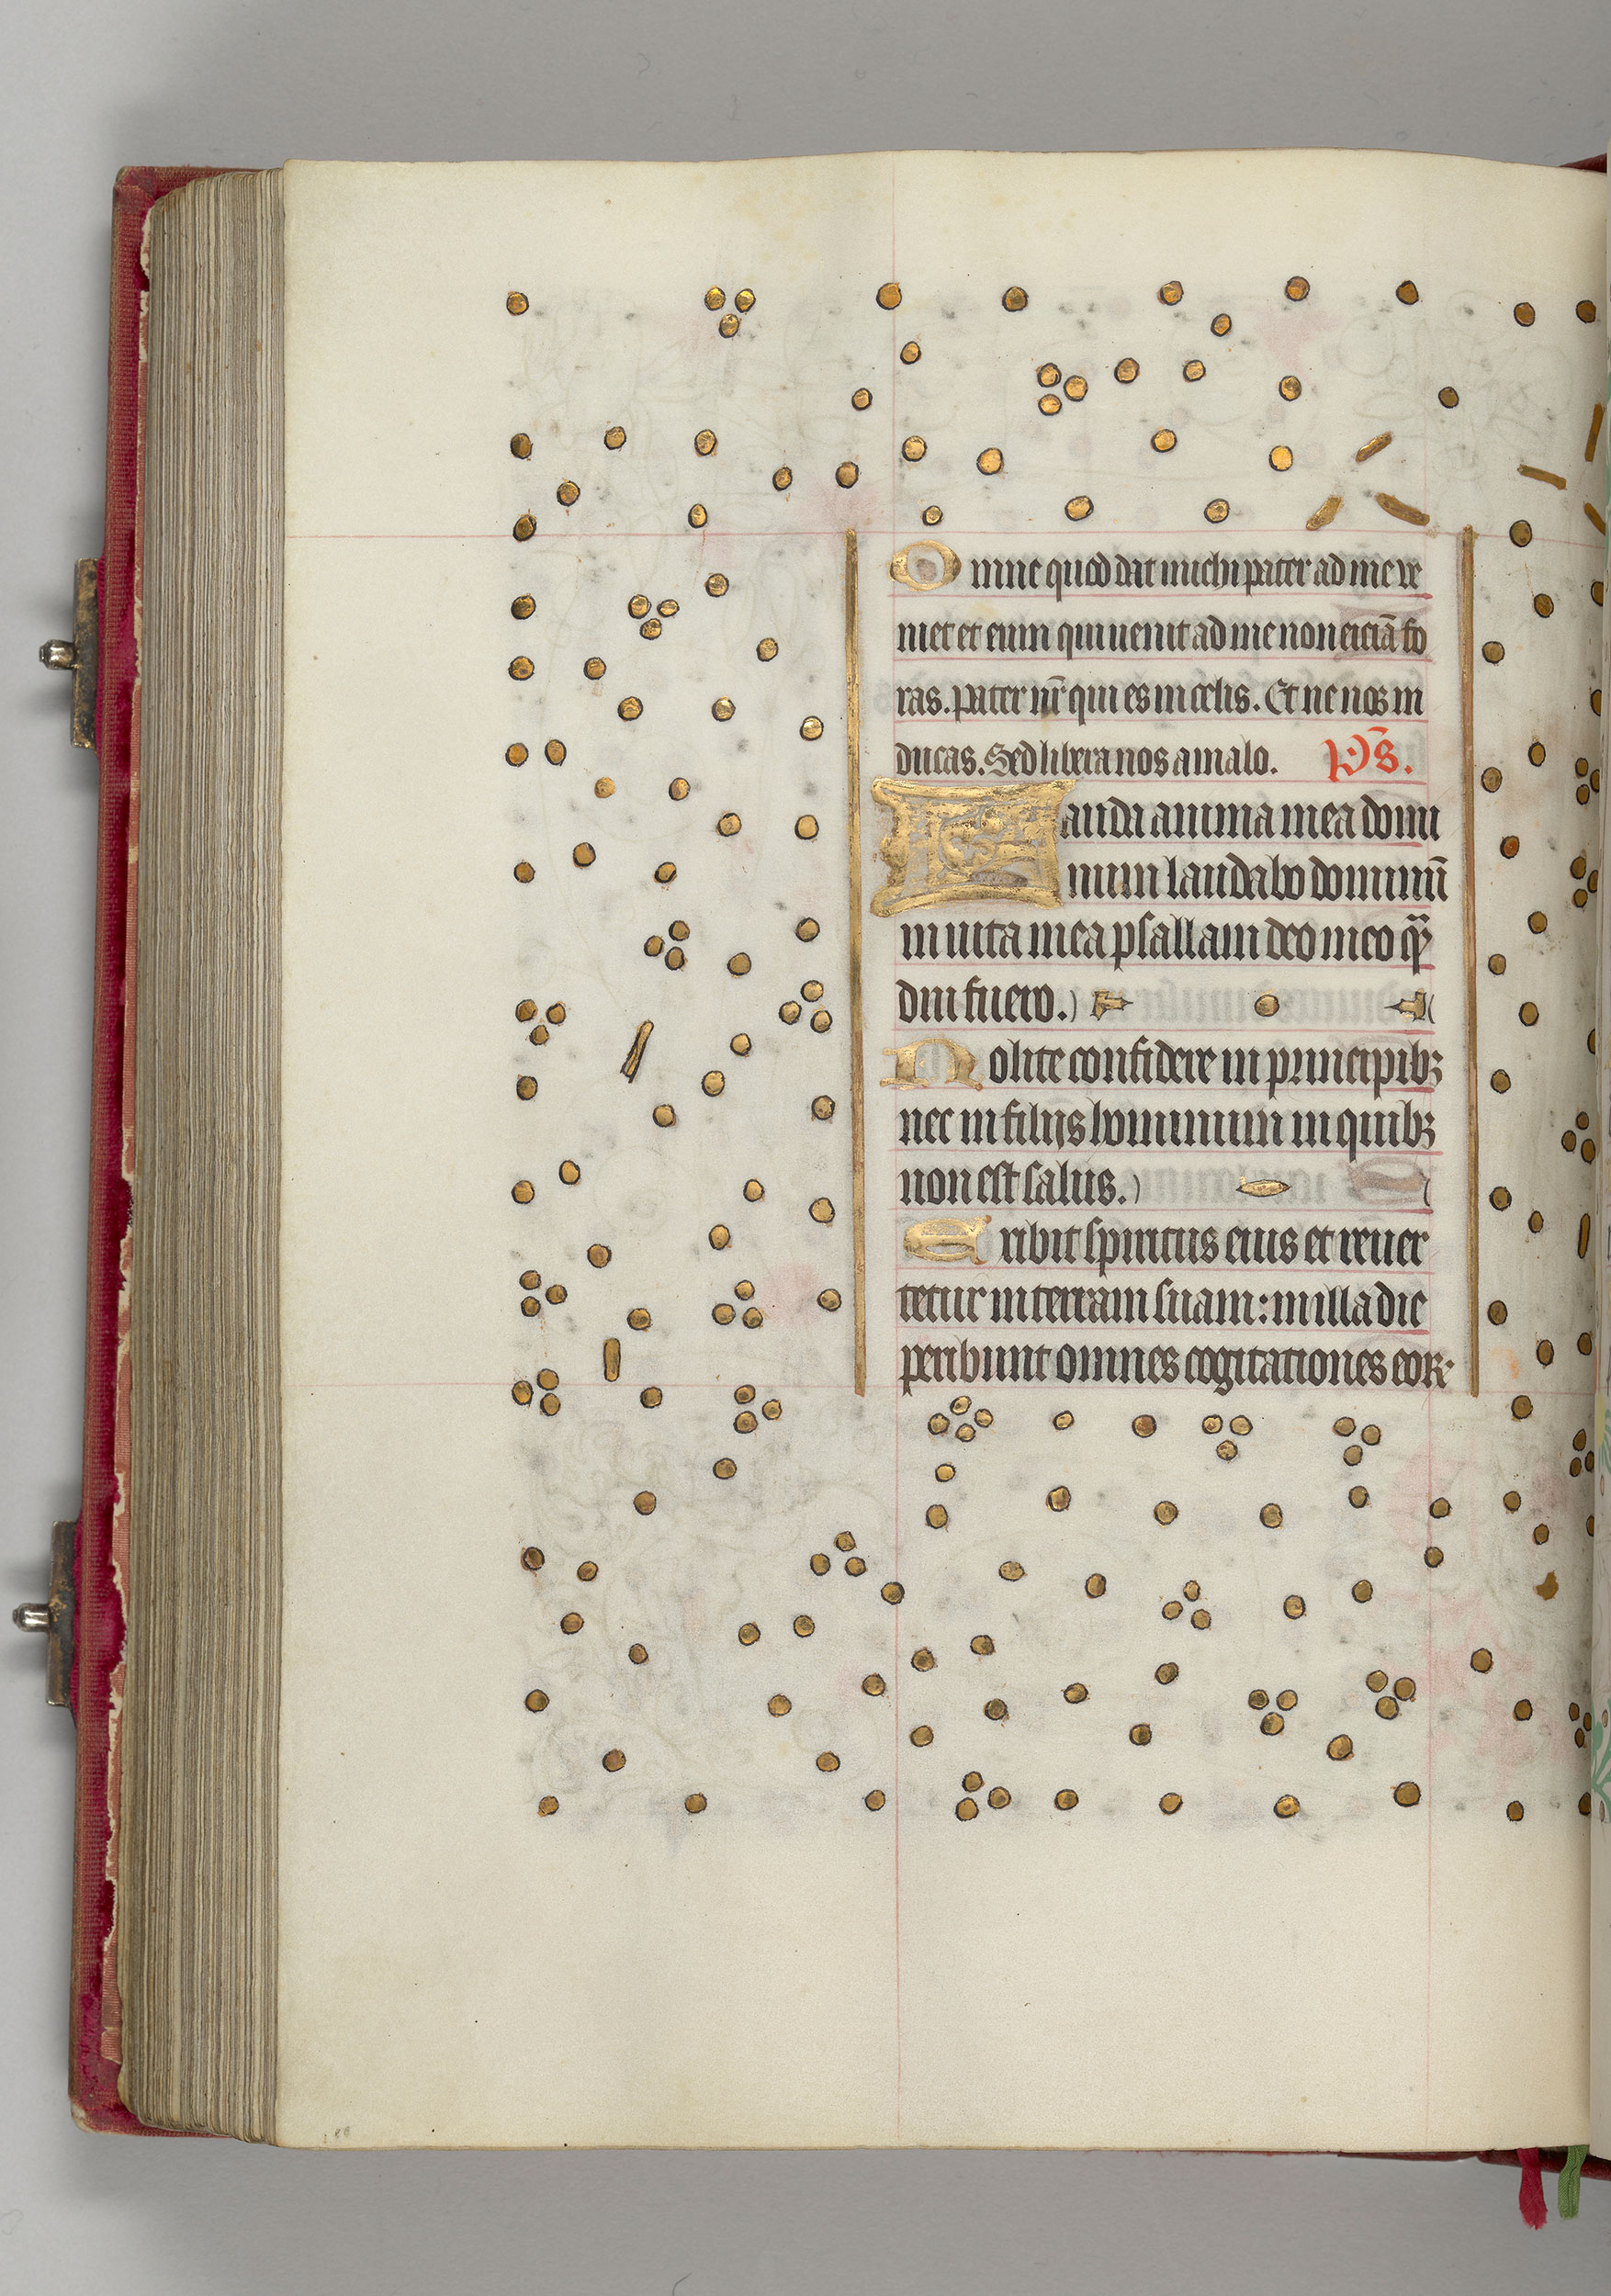 Omne quod dat michi pater ad me ve
niet et eum qui uenit ad me non eiciā fo
ras. Pater nr̄ qui es in celis. Et ne nos in
ducas. Sed libera nos a malo. p̄s.
Lauda anima mea domi
num laudabo dominū
in uita mea psallam deo meo q̄
diu fuero.
Nolite confidere in principibꝫ
nec in filijs hominum in quibꝫ
non est salus.
Exibit spiritus eius et reuer
tetur in terram suam: in illa die
peribunt omnes cogitationes eoꝝ.